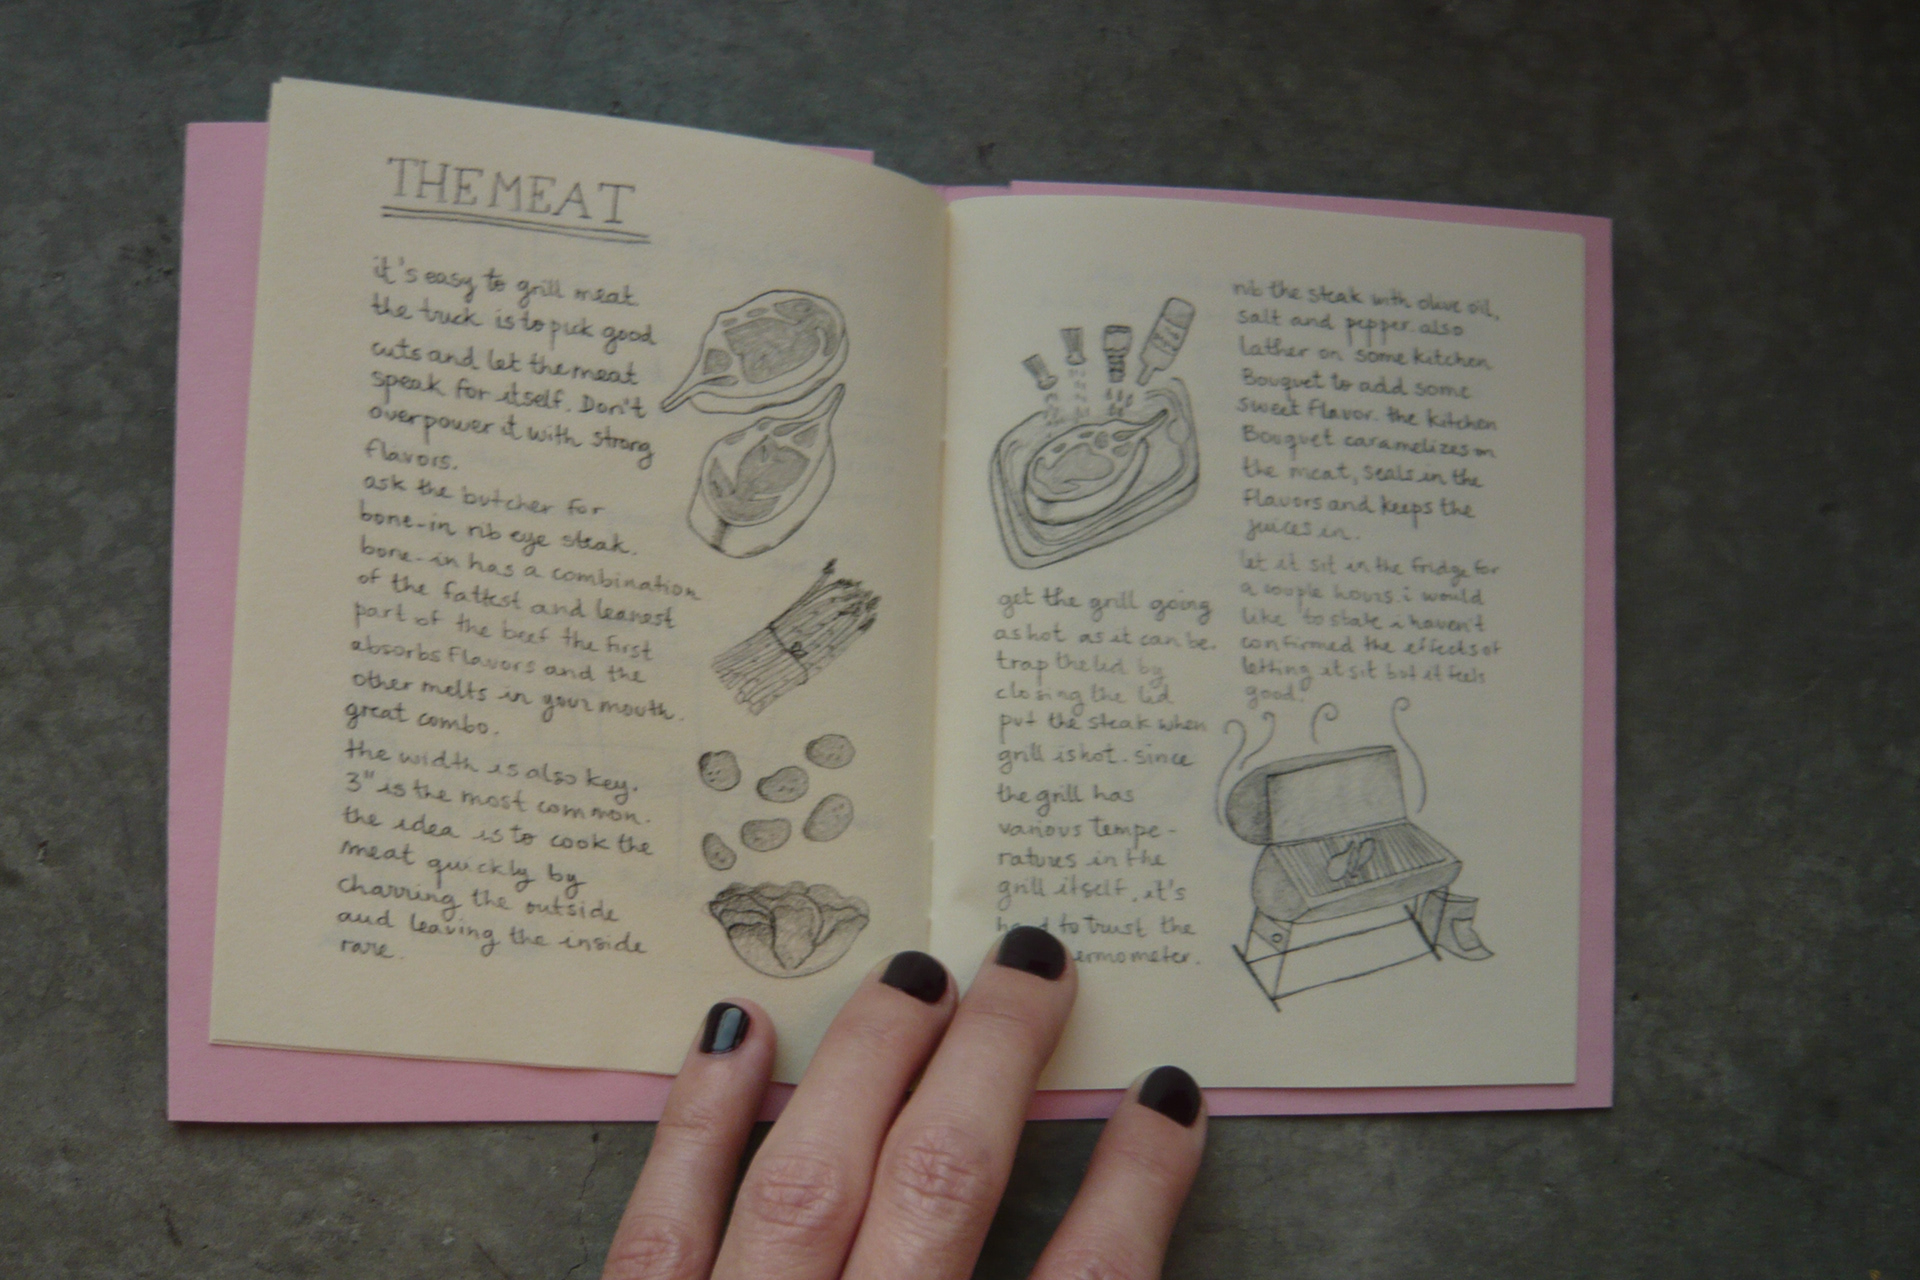 THE MEAT
it's easy to grill meat
the truck is to pick good
cuts and let the meat
speak for itself. Don't
overpower it with strong
flavors.
ask the butcher for
bone-in rib eye steak.
bone-in has a combination
of the fattest and leanest
part of the beef the first
absorbs flavors and the
other melts in your mouth.
great combo.
the width is also key.
3" is the most common.
the idea is to cook the
meat quickly by
charring the outside
and leaving the inside
rare.
rib the steak with olive oil,
salt and pepper. also
lather on some kitchen
Bouquet to add some
sweet flavor. the kitchen
Bouquet caramelizes on
the meat, seals in the
flavors and keeps the
juices in.
let it sit in the fridge for
a couple hours. i would
like to state i haven't
confirmed the effects of
letting it sit but it feels
good.
get the grill going
as hot as it can be.
trap the lid by
closing the lid
put the steak when
grill is hot. since
the grill has
various tempe-
ratures in the
grill itself, it's
to trust the